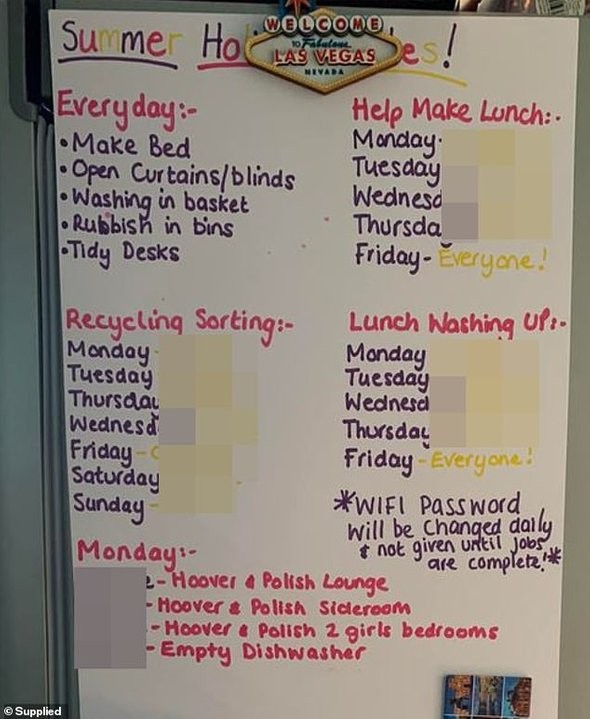 Summer Ho es!
WELCOME
TO Fabulous
LAS VEGAS
NEVADA
Everyday:-
• Make Bed
• Open Curtains/blinds
• Washing in basket
• Rubbish in bins
• Tidy Desks
Help Make Lunch:-
Monday-
Tuesday
Wednesd
Thursda
Friday - Everyone!
Recycling Sorting:-
Monday -
Tuesday
Thursday
Wednesd
Friday -
Saturday
Sunday -
Lunch Washing Up:-
Monday
Tuesday
Wednesd
Thursday
Friday - Everyone!
*WIFI Password
Will be changed daily
& not given until jobs
are complete!*
Monday:-
- Hoover & Polish Lounge
- Hoover & Polish Sideroom
- Hoover & Polish 2 girls bedrooms
- Empty Dishwasher
© Supplied